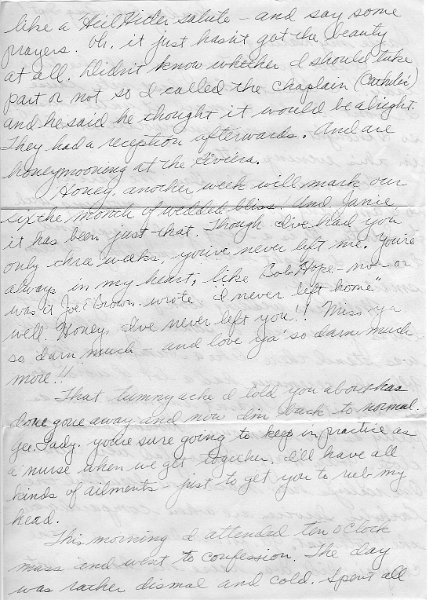 like a "Heil Hitler salute - and say some
prayers. Oh, it just hasn't got the beauty
at all. Didn't know whether I should take
part or not so I called the chaplain (Catholic)
and he said he thought it would be alright.
They had a reception afterwards. And are
honeymooning at the Riviera.
Honey, another week will mark our
sixth month of wedded bliss. And Janie,
it has been just that. Though I've had you
only weeks, you've never left me. You're
always in my heart, like Bob Hope - no - or
was it Joe E Brown wrote "I never left home"
well Honey, I've never left you!! Miss ya
so darn much and love ya' so darn much
more!!
That tummy ache I told you about has
done gone away and now I'm back to normal.
Gee, Lady, you're sure going to keep in practice as
a nurse when we get together. I'll have all
kinds of ailments - just to get you to rub my
head.
This morning I attended ten o'clock
mass and went to confession. The day
was rather dismal and cold. Spent all